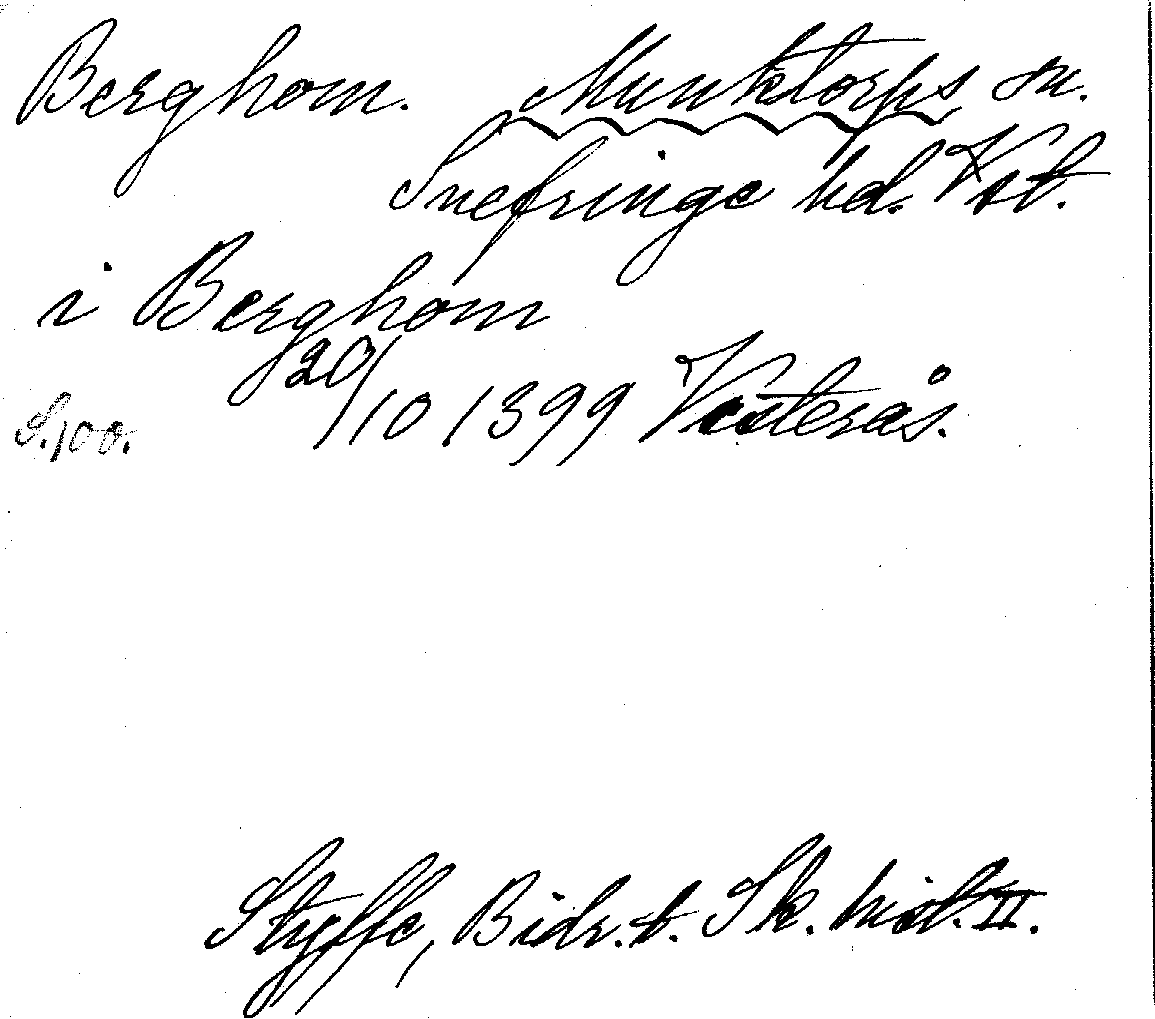 Berghom. Munktorps sn.
Snefringe hd. Vst.
i Berghom
20/10 1399 Västerås.
S. 100.
Styffe, Bidr. t. Sk. hist. II.